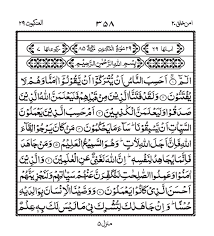 امن خلق ۲۰ ۳۵۸ العنكبوت ۲۹
اٰیاتها ۶۹ ۲۹ سُوْرَةُ الْعَنْكَبُوْتِ مَكِّیَّةٌ ۸۵ رکوعاتها ۷
بِسْمِ اللّٰهِ الرَّحْمٰنِ الرَّحِیْمِ
الٓمّٓ ۚ اَحَسِبَ النَّاسُ اَنْ یُّتْرَكُوْۤا اَنْ یَّقُوْلُوْۤا اٰمَنَّا وَهُمْ لَا
یُفْتَنُوْنَ وَلَقَدْ فَتَنَّا الَّذِیْنَ مِنْ قَبْلِهِمْ فَلَیَعْلَمَنَّ اللّٰهُ الَّذِیْنَ
صَدَقُوْا وَلَیَعْلَمَنَّ الْكٰذِبِیْنَ اَمْ حَسِبَ الَّذِیْنَ یَعْمَلُوْنَ
السَّیِّاٰتِ اَنْ یَّسْبِقُوْنَا سَآءَ مَا یَحْكُمُوْنَ مَنْ كَانَ یَرْجُوْا لِقَآءَ
اللّٰهِ فَاِنَّ اَجَلَ اللّٰهِ لَاٰتٍ وَهُوَ السَّمِیْعُ الْعَلِیْمُ وَمَنْ جَاهَدَ
فَاِنَّمَا یُجَاهِدُ لِنَفْسِهٖ اِنَّ اللّٰهَ لَغَنِیٌّ عَنِ الْعٰلَمِیْنَ وَالَّذِیْنَ
اٰمَنُوْا وَعَمِلُوا الصّٰلِحٰتِ لَنُكَفِّرَنَّ عَنْهُمْ سَیِّاٰتِهِمْ وَلَنَجْزِیَنَّهُمْ
اَحْسَنَ الَّذِیْ كَانُوْا یَعْمَلُوْنَ وَوَصَّیْنَا الْاِنْسَانَ بِوَالِدَیْهِ
حُسْنًا وَاِنْ جَاهَدٰكَ لِتُشْرِكَ بِیْ مَا لَیْسَ لَكَ بِهٖ عِلْمٌ
منزل ۵